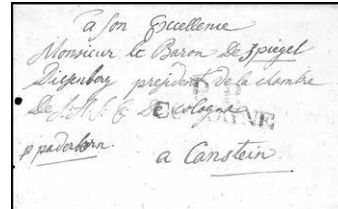 a son Excellence
Monsieur le Baron De Spiegel
Diesenberg president de la chambre
De S. A. S. E. De cologne
p paderborn.
a Canstein.